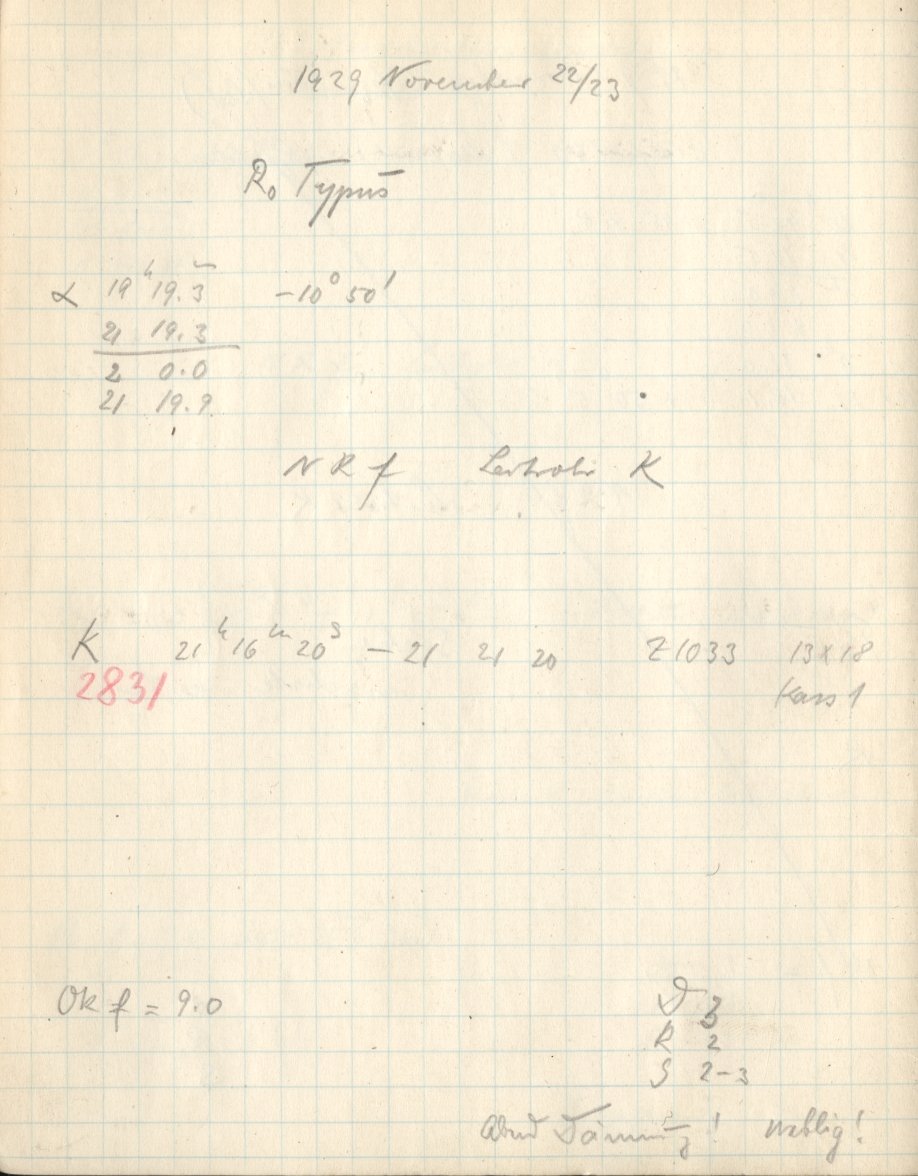 1929 November 22/23
R₀ Typus
α 19ʰ 19.3ᵐ −10° 50'
21 19.3
2 0.0
21 19.9
N R f Leitrohr K
K 21ʰ 16ᵐ 20ˢ − 21 21 20 Z 1033 13×18
2831 Kass 1
Ok f = 9.0
D 3
R 2
S 2–3
Abend Dämmrg! neblig!